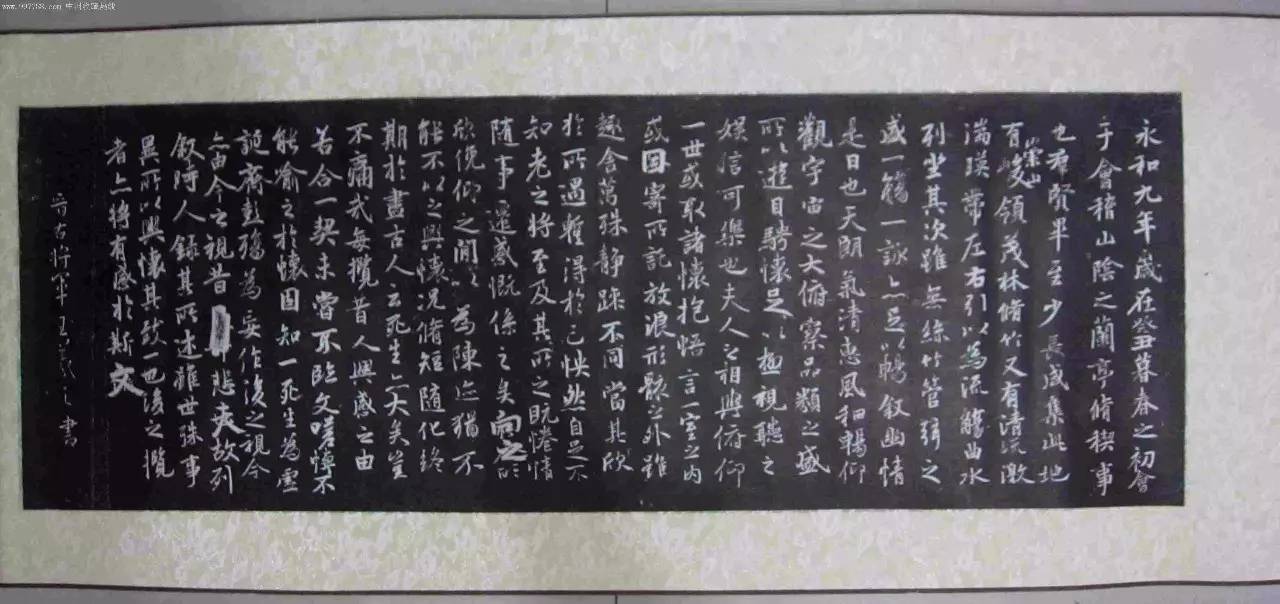 www.997788.com 中国收藏热线
永和九年歲在癸丑暮春之初會
于會稽山陰之蘭亭脩稧事
也羣賢畢至少長咸集此地
有崇山峻領茂林脩竹又有清流激
湍暎帶左右引以為流觴曲水
列坐其次雖無絲竹管弦之
盛一觴一詠亦足以暢叙幽情
是日也天朗氣清惠風和暢仰
觀宇宙之大俯察品類之盛
所以遊目騁懷足以極視聽之
娛信可樂也夫人之相與俯仰
一世或取諸懷抱悟言一室之內
或因寄所託放浪形骸之外雖
趣舍萬殊靜躁不同當其欣
於所遇暫得於己怏然自足不
知老之將至及其所之既惓情
隨事遷感慨係之矣向之所
欣俛仰之閒以為陳迹猶不
能不以之興懷況脩短隨化終
期於盡古人云死生亦大矣豈
不痛哉每攬昔人興感之由
若合一契未嘗不臨文嗟悼不
能喻之於懷固知一死生為虛
誕齊彭殤為妄作後之視今
亦由今之視昔悲夫故列
叙時人錄其所述雖世殊事
異所以興懷其致一也後之攬
者亦將有感於斯文
晉右將軍王羲之書